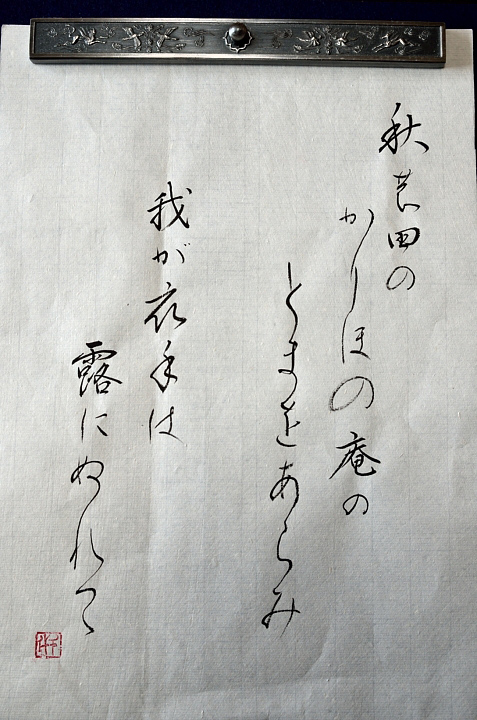 秋の田の
かりほの庵の
とまをあらみ
我が衣手は
露にぬれつゝ